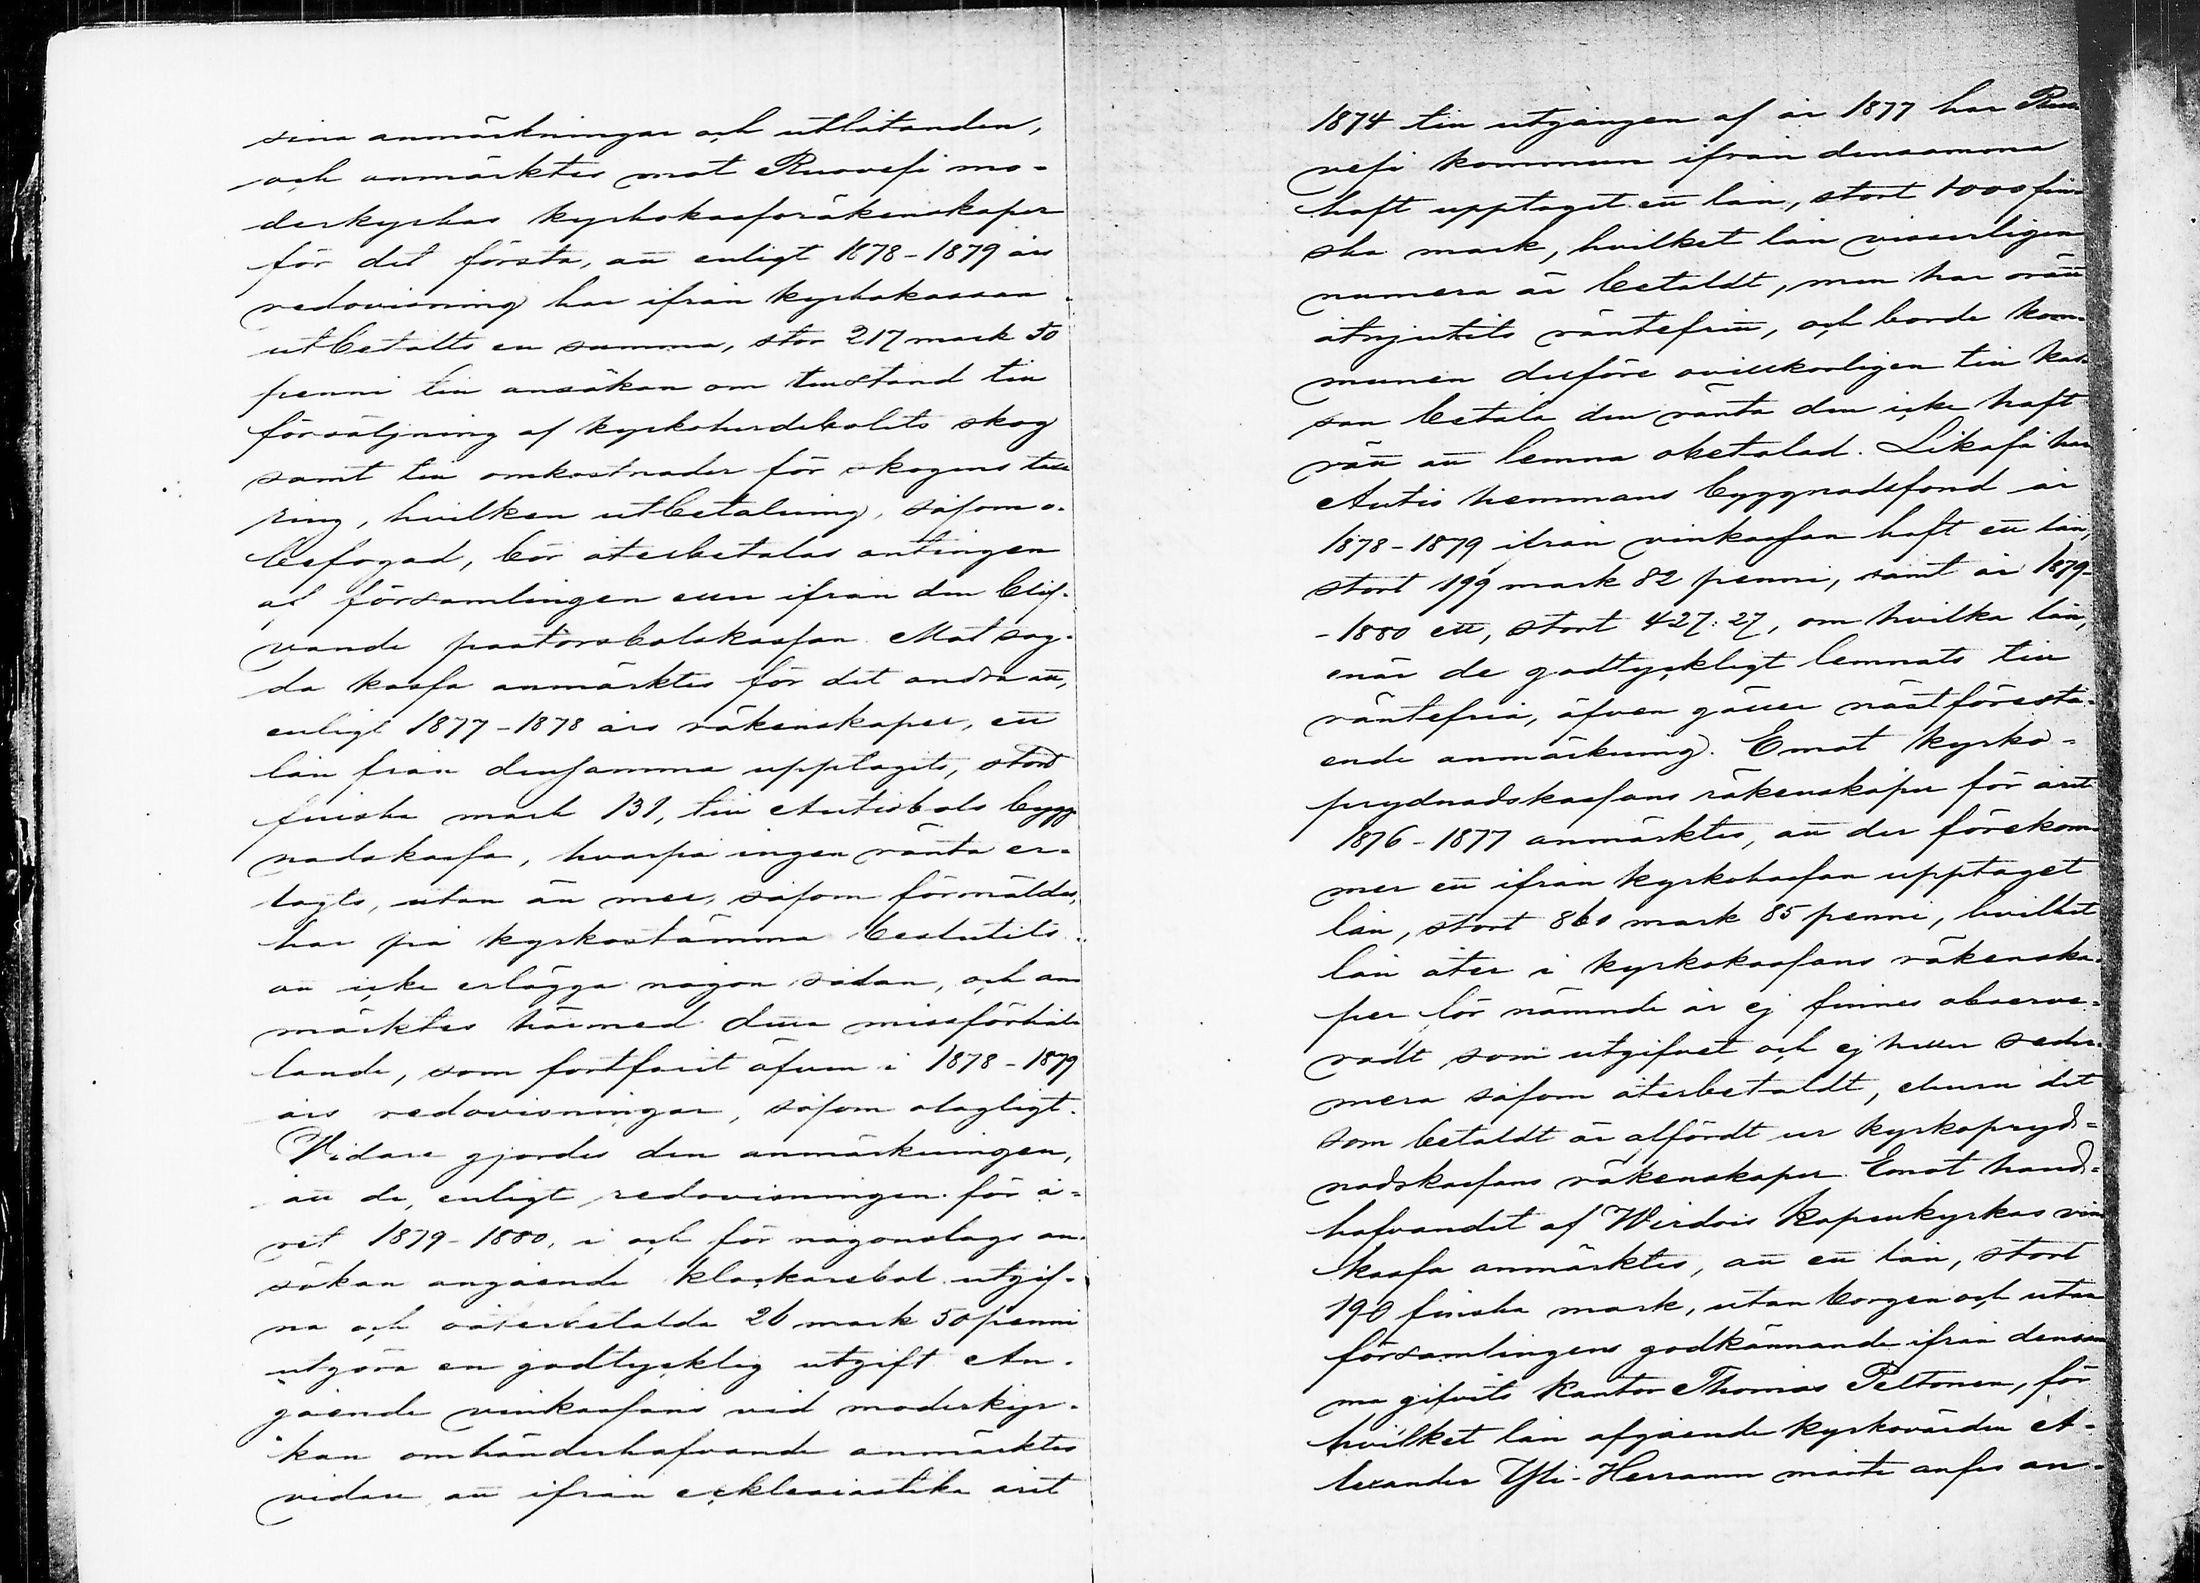 sina anmärkningar och utlåtanden,
och anmärktes mot Ruovesi mo-
derkyrkas kyrkokassaräkenskaper
för det första, att enligt 1878-1879 års
redovisning har ifrån kyrkokassan
utbetalts en summa, stor 217 mark 50
penni till ansökan om tillstånd till
försäljning af kyrkoherdebolets skog
samt till omkostnader för skogens
ring, hvilken utbetalning, såsom o-
befogad, bör återbetalas antingen
af församlingen eller ifrån den blif-
vande pastorsbolskassan. Mot sag-
da kassa anmärktes för det andra att,
enligt 1877-1878 års räkenskaper, ett
lån från densamma upptagits, stort
finska mark 131, till Autisbols bygg
nadskassa, hvarpå ingen ränta er-
lagts, utan än mer, såsom förmäldes,
har på kyrkostämma beslutits
att icke erlägga någon sådan, och an
märktes härmed detta missförhål
lande, som fortfarit äfven i 1878-1879
års redovisningar, såsom olagligt.
Vidare gjordes den anmärkningen,
att de, enligt redovisningen för å-
ret 1879-1880, i och för någonslags an-
sökan angående klockarebol utgif-
na och oåterbetalda 26 mark 50 penni
utgöra en godtycklig utgift. An-
gående vinkassans vid moderkyr-
kan omhänderhafvande anmärktes
vidare att ifrån ecklesiastika året
1874 till utgången af år 1877 har Ruo-
vesi kommun ifrån densamma
haft upptaget ett lån, stort 1000 fin-
ska mark, hvilket lån visserligen
numera är betaldt, men har orätt
åtnjutits räntefritt, och borde kom-
munen derföre ovillkorligen till kas-
san betala den ränta den icke haft
rätt att lemna obetalad. Likaså har
Autis hemmans byggnadsfond år
1878-1879 ifrån vinkassan haft ett lån,
stort 199 mark 82 penni, samt år 1879-
-1880 ett, stort 427:27, om hvilka lån,
enär de godtyckligt lemnats till
räntefria, äfven gäller nästförestå-
ende anmärkning. Emot kyrko-
prydnadskassans räkenskaper för året
1876-1877 anmärktes, att der förekom-
mer ett ifrån kyrkokassan upptaget
lån, stort 860 mark 85 penni, hvilket
lån åter i kyrkokassans räkenska-
per för nämnde år ej finnes observe-
radt som utgifvet och ej heller seder-
mera såsom återbetaldt, ehuru det
som betaldt är affördt ur kyrkopryd-
nadskassans räkenskaper. Emot hand-
hafvandet af Wirdois kapellkyrkas vin
kassa anmärktes, att ett lån, stort
190 finska mark, utan borgen och utan
församlingens godkännande ifrån densam
ma gifvits kantor Thomas Peltonen, för
hvilket lån afgående kyrkovärden A-
lexander Yli-Herranen måste anses an-